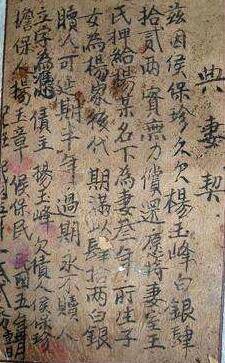 典妻契
茲因侯保珍欠楊玉峰白銀肆
拾貳兩實無力償還原将妻室王
氏押給楊某名下為妻叁年所生子
女為楊家後代期滿以肆拾兩白銀
贖人可延期半年過期永不贖人
立字為憑債主楊玉峰欠積人侯保珍
擔保人楊玉章侯保民 民國五年